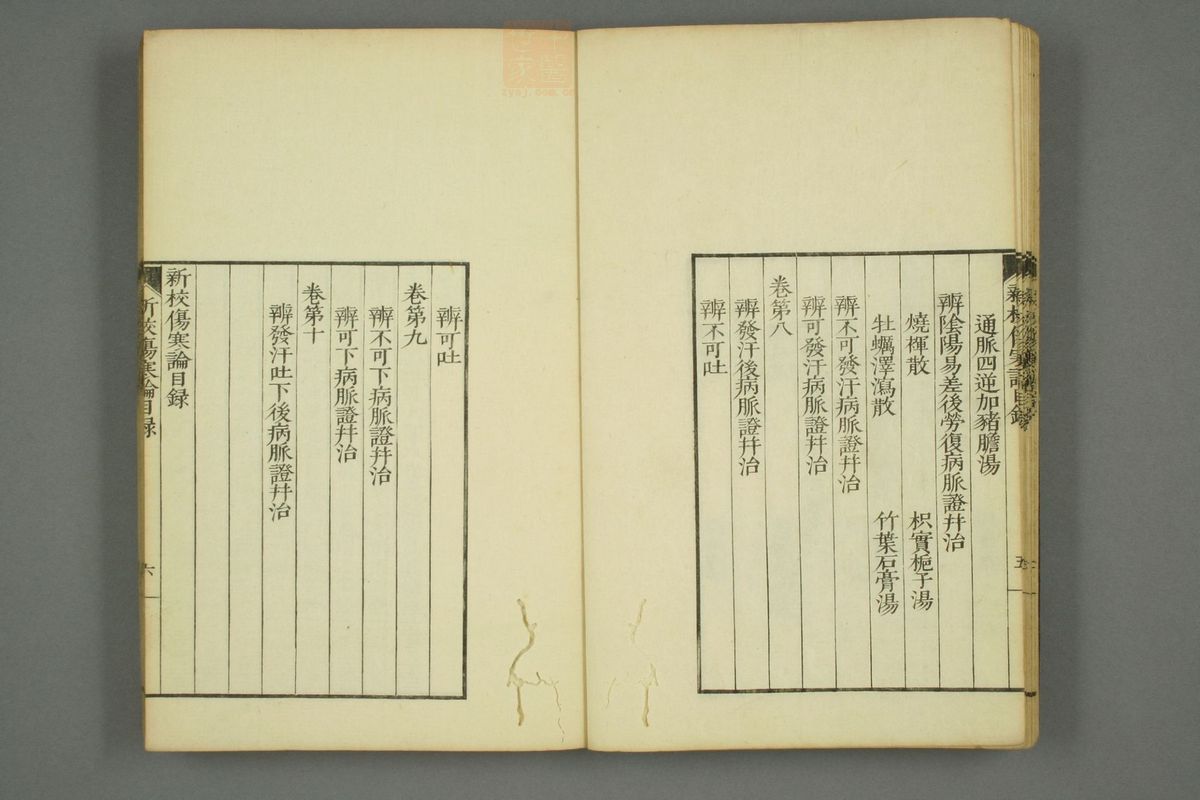 新校傷寒論目錄
五
通脈四逆加豬膽湯
辨陰陽易差後勞復病脈證幷治
燒褌散 枳實梔子湯
牡蠣澤瀉散 竹葉石膏湯
辨不可發汗病脈證幷治
辨可發汗病脈證幷治
卷第八
辨發汗後病脈證幷治
辨不可吐
辨可吐
卷第九
辨不可下病脈證幷治
辨可下病脈證幷治
卷第十
辨發汗吐下後病脈證幷治
新校傷寒論目録
新校傷寒論目録
六